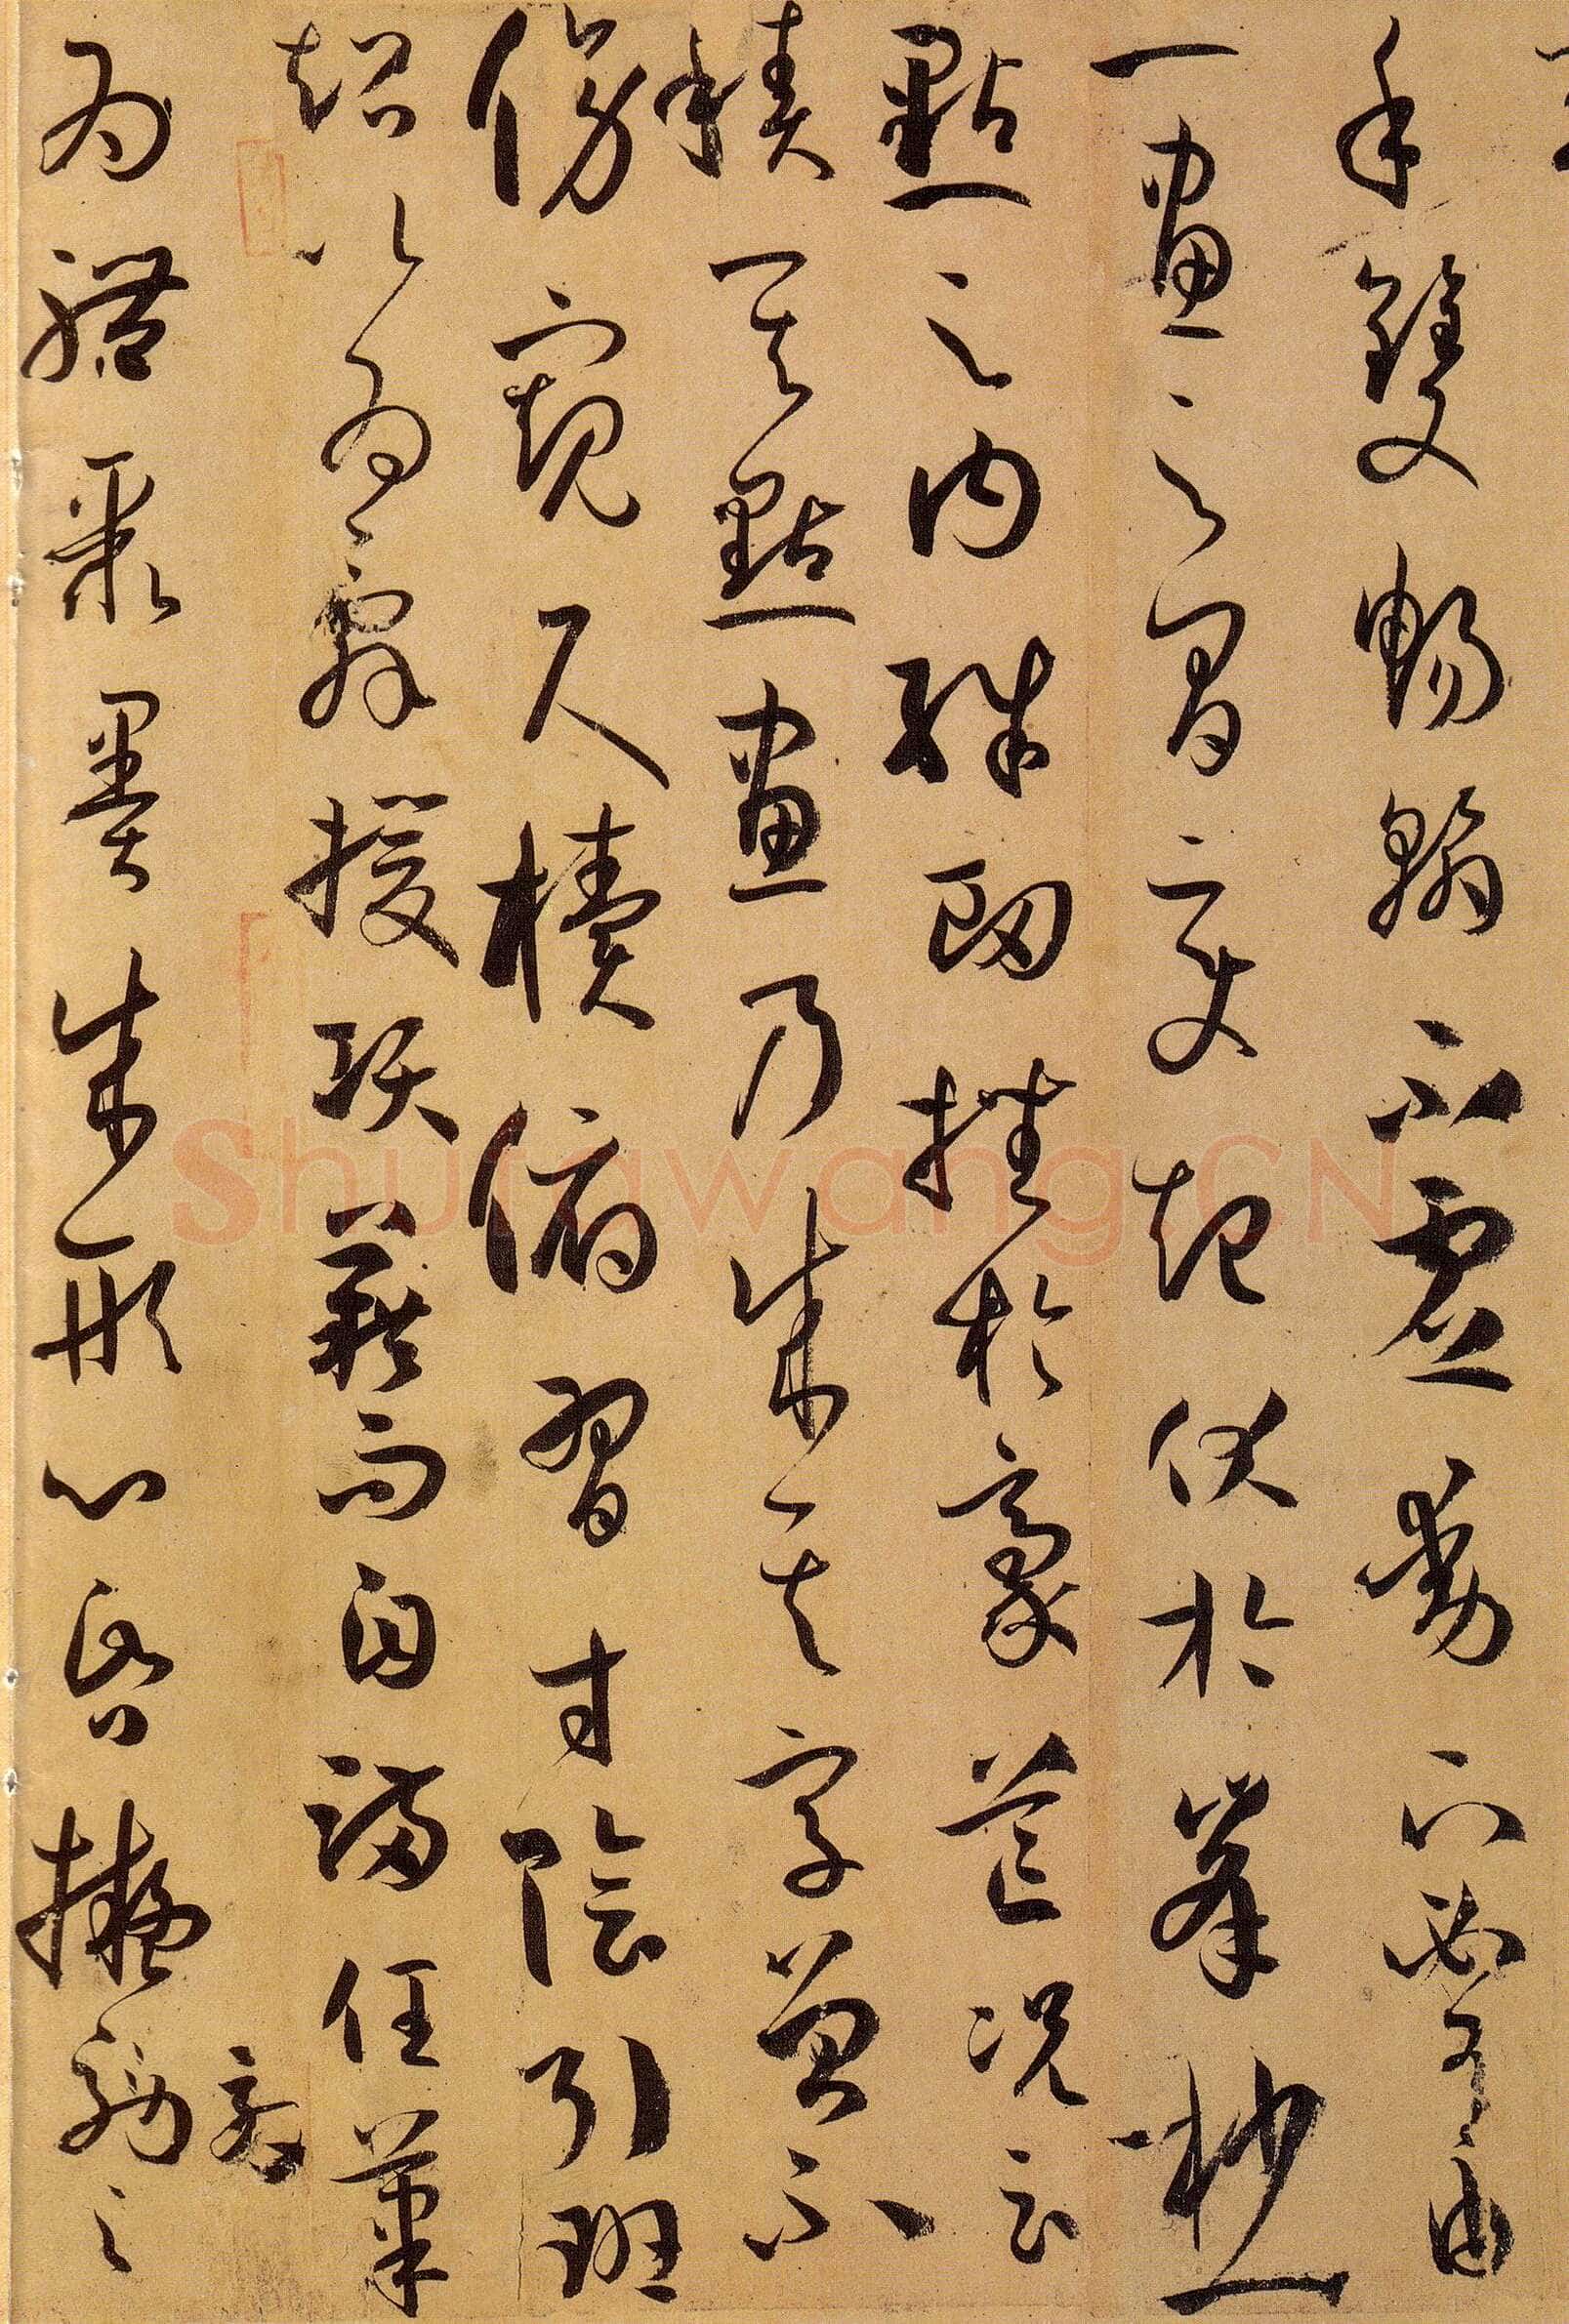 手雙暢翰不虛動下必有由
一畫之間變起伏於峯杪一
點之內殊衂挫於豪芒況云
積其點畫乃成其字曾不
傍窺尺櫝俯習寸陰引班
超以為辭援項籍而自滿任筆
為體聚墨成形心昏擬效之
Shufawang.CN